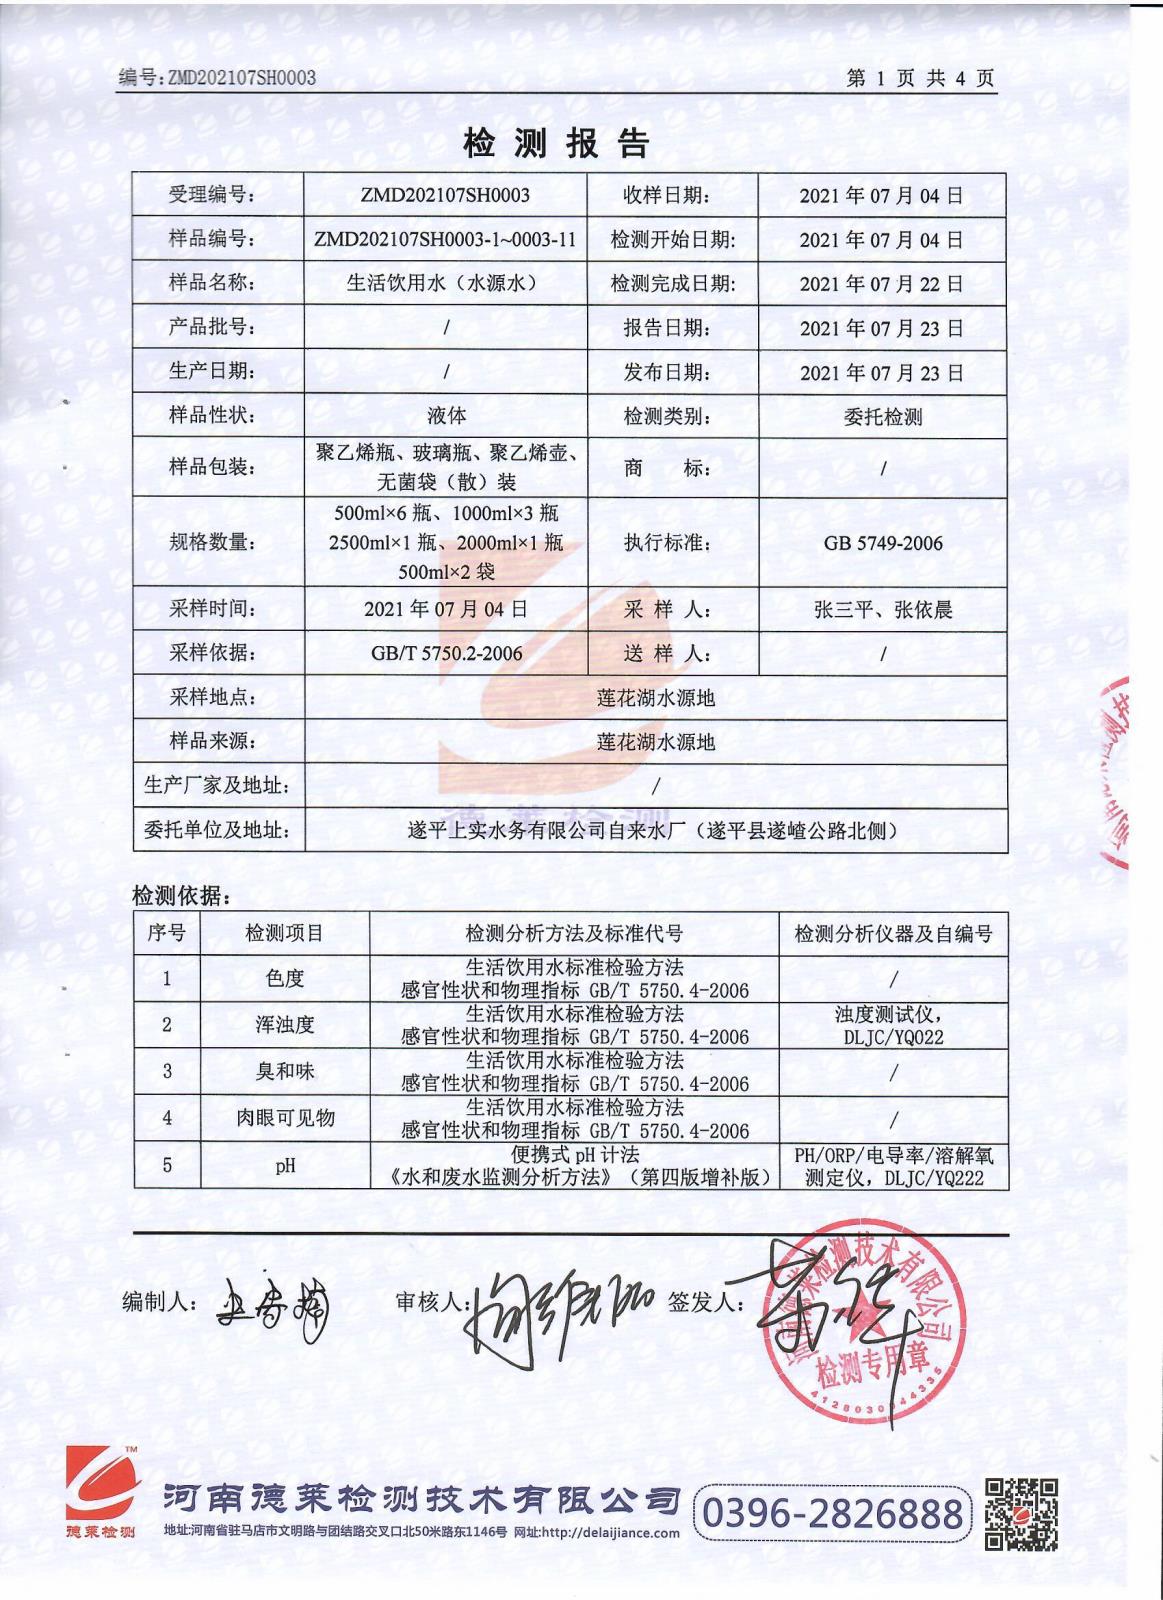 编号:ZMD202107SH0003
第 1 页 共 4 页
检 测 报 告
受理编号: ZMD202107SH0003 收样日期: 2021 年 07 月 04 日
样品编号: ZMD202107SH0003-1~0003-11 检测开始日期: 2021 年 07 月 04 日
样品名称: 生活饮用水（水源水） 检测完成日期: 2021 年 07 月 22 日
产品批号: / 报告日期: 2021 年 07 月 23 日
生产日期: / 发布日期: 2021 年 07 月 23 日
样品性状: 液体 检测类别: 委托检测
样品包装: 聚乙烯瓶、玻璃瓶、聚乙烯壶、
无菌袋（散）装 商 标: /
规格数量: 500ml×6 瓶、1000ml×3 瓶
2500ml×1 瓶、2000ml×1 瓶
500ml×2 袋 执行标准: GB 5749-2006
采样时间: 2021 年 07 月 04 日 采 样 人: 张三平、张依晨
采样依据: GB/T 5750.2-2006 送 样 人: /
采样地点: 莲花湖水源地
样品来源: 莲花湖水源地
生产厂家及地址: /
委托单位及地址: 遂平上实水务有限公司自来水厂（遂平县遂嵖公路北侧）
德莱检测
检测依据:
序号 检测项目 检测分析方法及标准代号 检测分析仪器及自编号
1 色度 生活饮用水标准检验方法
感官性状和物理指标 GB/T 5750.4-2006 /
2 浑浊度 生活饮用水标准检验方法
感官性状和物理指标 GB/T 5750.4-2006 浊度测试仪，
DLJC/YQ022
3 臭和味 生活饮用水标准检验方法
感官性状和物理指标 GB/T 5750.4-2006 /
4 肉眼可见物 生活饮用水标准检验方法
感官性状和物理指标 GB/T 5750.4-2006 /
5 pH 便携式 pH 计法
《水和废水监测分析方法》（第四版增补版） PH/ORP/电导率/溶解氧
测定仪，DLJC/YQ222
编制人: 审核人: 签发人:
河南德莱检测技术有限公司
检测专用章
4128030044335
TM
德莱检测
河南德莱检测技术有限公司
0396-2826888
地址:河南省驻马店市文明路与团结路交叉口北50米路东1146号 网址:http://delaijiance.com